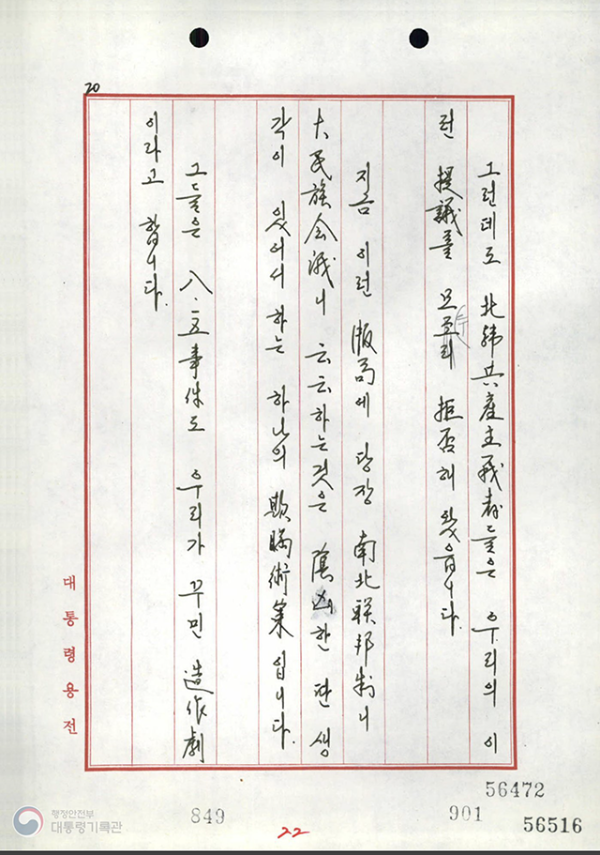 20
그런데도 北韓共産主義者들은 우리의 이
런 提議를 모조리 拒否해 왔읍니다.
지금 이런 版局에 당장 南北联邦制니
大民族会議니 云云하는것은 陰凶한 딴 생
각이 있어서 하는 하나의 欺瞞術策입니다.
그들은 八.一五事件도 우리가 꾸민 造作劇
이라고 합니다.
대통령용전
56472
849
901
56516
22
행정안전부
대통령기록관